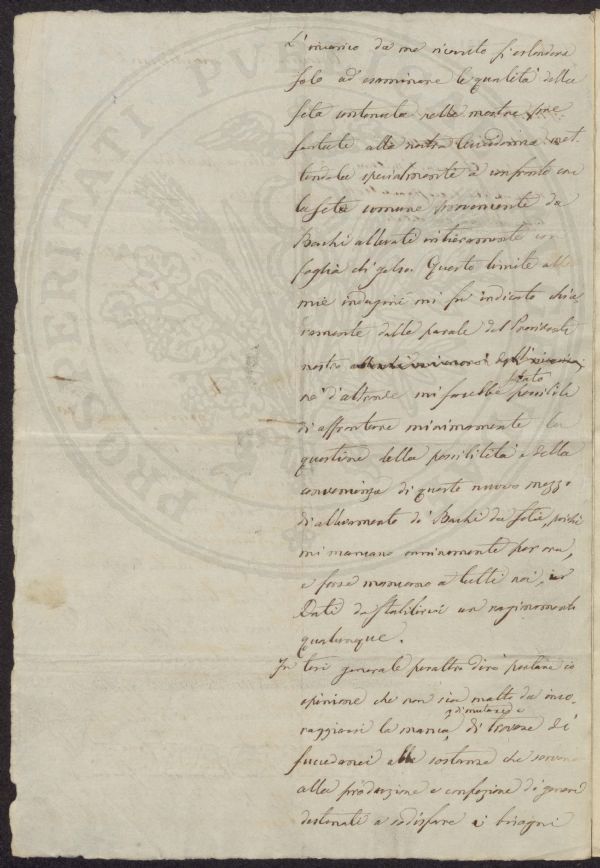 L'incarico da me ricevuto si estendeva
solo ad esaminare le qualità della
seta contenuta nelle mostre pre
sentate alla nostra
tendola specialmente a confronto con
la seta comune proveniente da
Bachi allevati intieramente con
foglia di gelso. Questo limite alle
mie indagini mi fu indicato chia
ramente dalle parole del Presidente
nostro
nè d'altronde mi sarebbe stato possibile
di affrontare minimamente la
questione della possibilità e della
convenienza di questo nuovo mezzo
di allevamento di Bachi da seta, poichè
mi mancano onninamente per ora,
e forse mancano a tutti noi, i
Dati da stabilirvi un ragionamento
qualunque.
In tesi generale peraltro dirò portare io
opinione che non sia molto da inco-
raggiarsi la mania di mutare e di trovare dei
succedanei alle sostanze che servono
alla produzione e confezione di generi
destinati a sodisfare i bisogni
PROSPERITATI PUBL